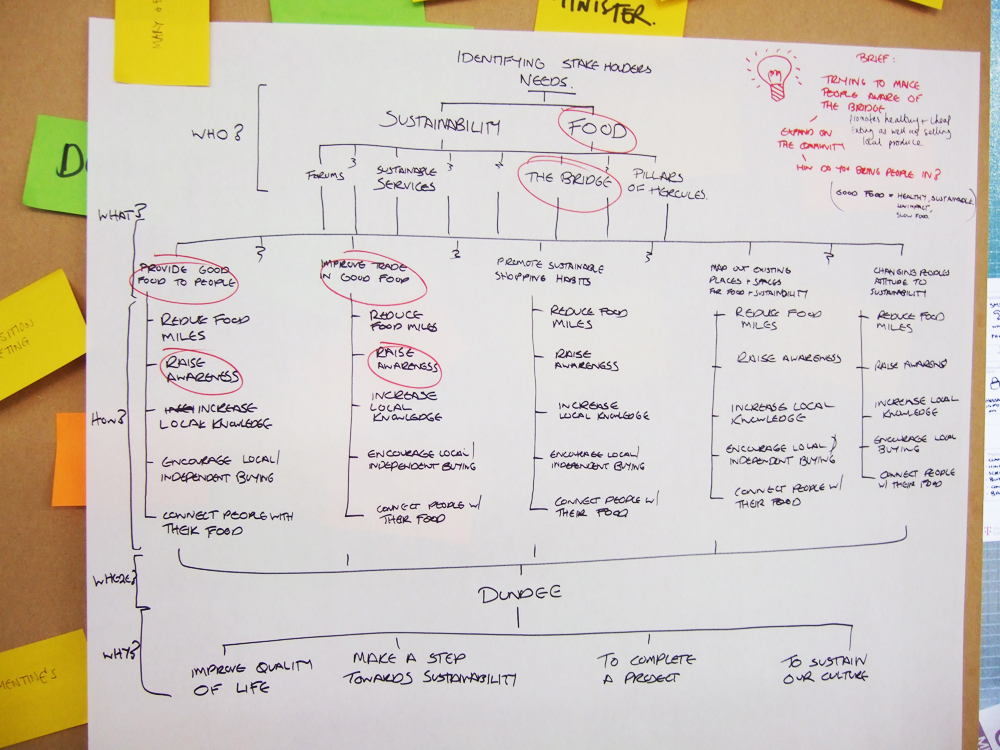 MINISTER.
IDENTIFYING STAKEHOLDERS
NEEDS.
WHO?
SUSTAINABILITY
FOOD
FORUMS
?
SUSTAINABLE
SERVICES
?
?
THE BRIDGE
?
PILLARS
OF HERCULES.
BRIEF:
TRYING TO MAKE
PEOPLE AWARE OF
THE BRIDGE
Promotes healthy + cheap
Eating as well as selling
local produce
EXPAND ON
THE COMMUNITY
HOW DO YOU BRING PEOPLE IN?
(GOOD FOOD = HEALTHY, SUSTAINABLE,
LOW IMPACT,
SLOW FOOD.)
WHAT?
?
?
?
?
PROVIDE GOOD
FOOD TO PEOPLE
IMPROVE TRADE
IN GOOD FOOD
PROMOTE SUSTAINABLE
SHOPPING HABITS
MAP OUT EXISTING
PLACES + SPACES
FOR FOOD + SUSTAINBILITY
CHANGING PEOPLES
ATTITUDE TO
SUSTAINABILITY
HOW?
REDUCE FOOD
MILES
RAISE
AWARENESS
INCREASE
LOCAL KNOWLEDGE
ENCOURAGE LOCAL/
INDEPENDENT BUYING
CONNECT PEOPLE WITH
THEIR FOOD
REDUCE
FOOD MILES
RAISE
AWARENESS
INCREASE
LOCAL
KNOWLEDGE
ENCOURAGE LOCAL/
INDEPENDENT BUYING
CONNECT PEOPLE W/
THEIR FOOD
REDUCE FOOD
MILES
RAISE
AWARENESS
INCREASE
LOCAL KNOWLEDGE
ENCOURAGE LOCAL/
INDEPENDENT BUYING
CONNECT PEOPLE W/
THEIR FOOD
REDUCE FOOD
MILES
RAISE AWARENESS
INCREASE LOCAL
KNOWLEDGE
ENCOURAGE LOCAL/
INDEPENDENT BUYING
CONNECT PEOPLE W/
THEIR FOOD
REDUCE FOOD
MILES
RAISE AWARENESS
INCREASE LOCAL
KNOWLEDGE
ENCOURAGE LOCAL
BUYING
CONNECT PEOPLE
W/ THEIR FOOD
WHERE?
DUNDEE
WHY?
IMPROVE QUALITY
OF LIFE
MAKE A STEP
TOWARDS SUSTAINABILITY
TO COMPLETE
A PROJECT
TO SUSTAIN
OUR CULTURE